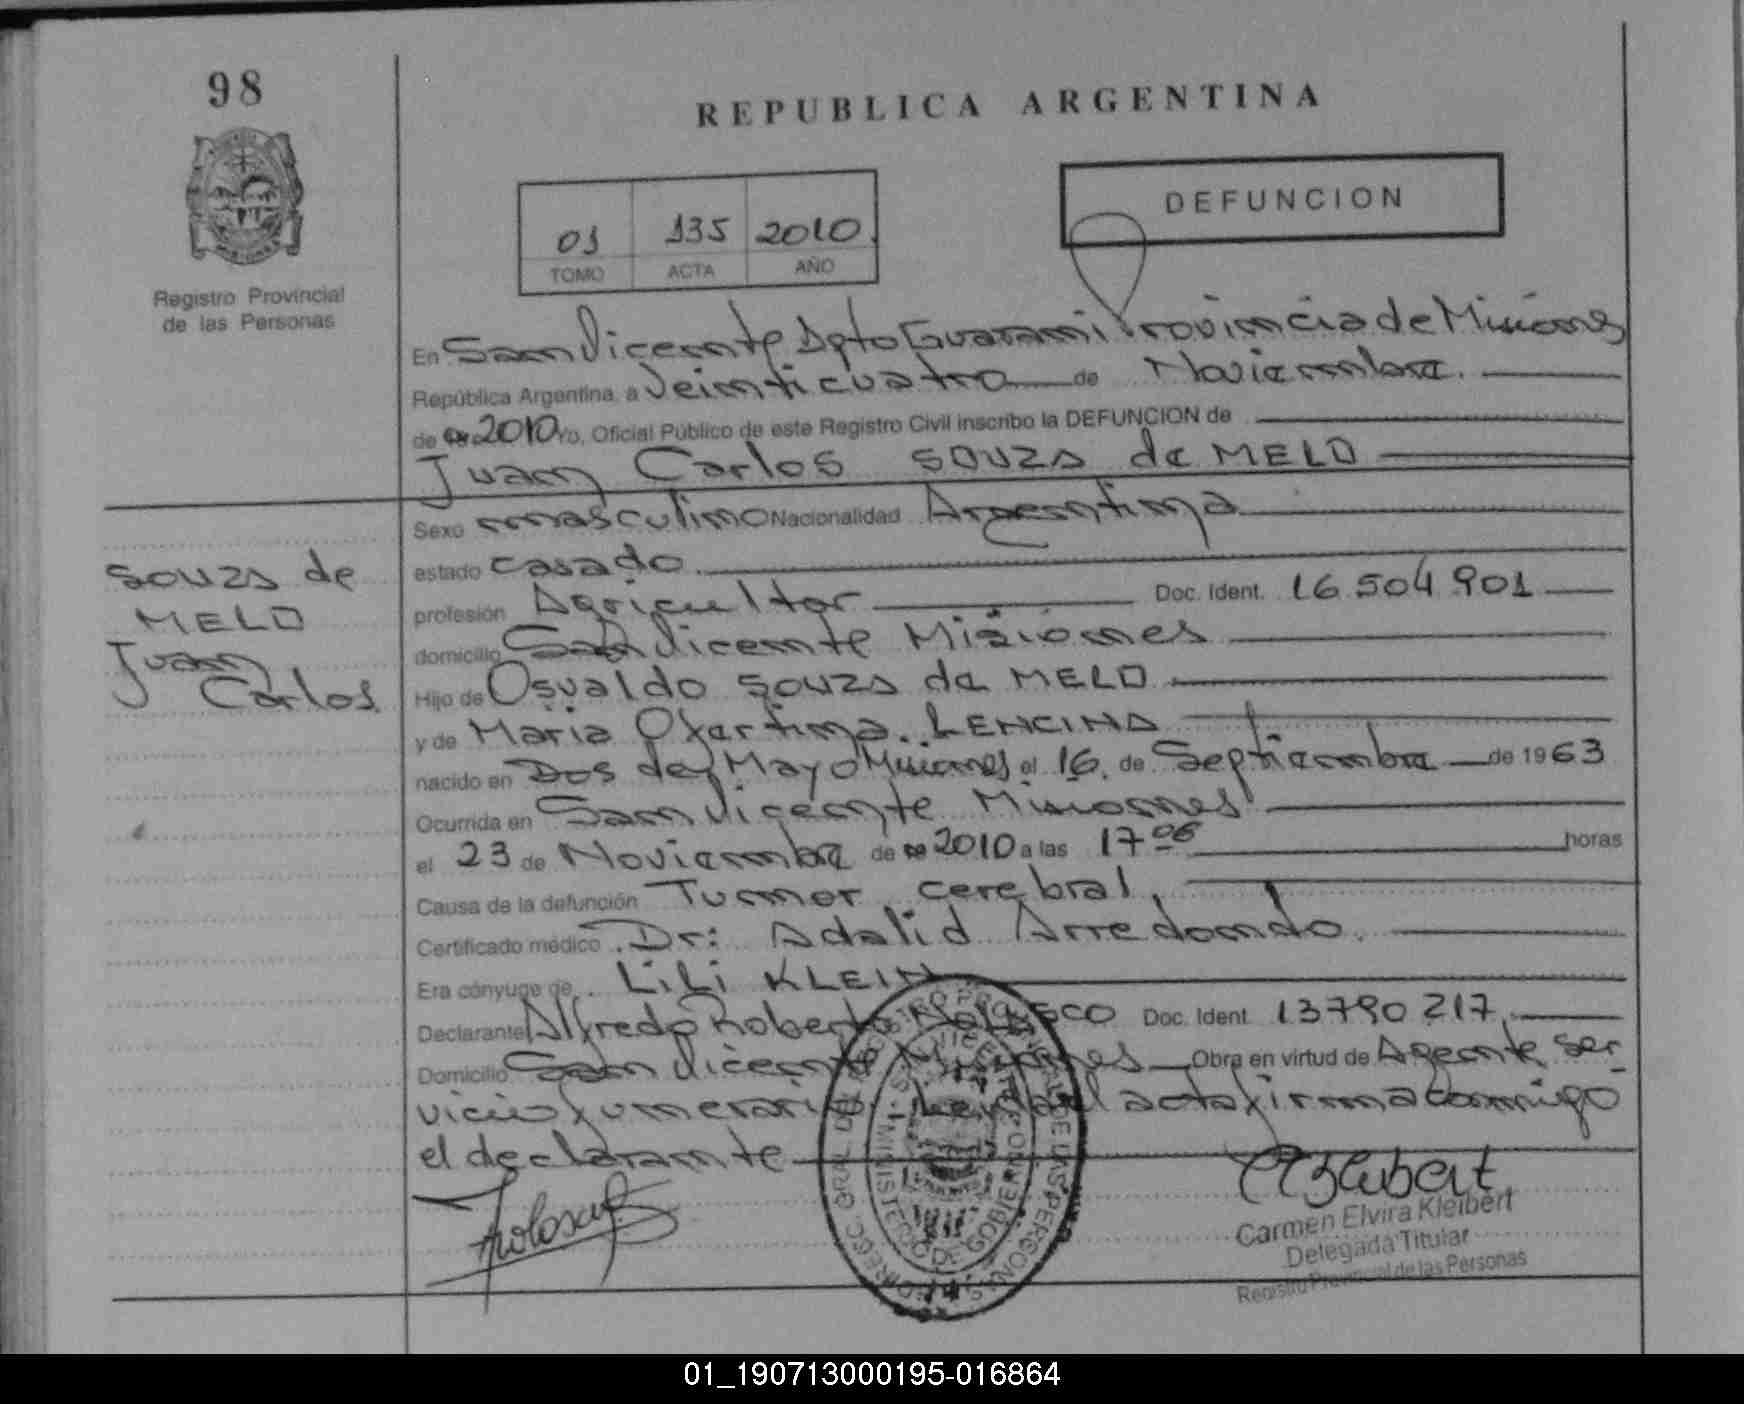 98
REPUBLICA ARGENTINA
DEFUNCION
01 135 2010
TOMO ACTA AÑO
Registro Provincial
de las Personas
En San Vicente Dpto Guarani Provincia de Misiones
República Argentina, a Veinticuatro de Noviembre.
de 2010 Yo, Oficial Público de este Registro Civil inscribo la DEFUNCION de
Juan Carlos SOUZA de MELO
Sexo masculino Nacionalidad Argentina
SOUZA de
MELO
Juan
Carlos
estado casado
profesión Agricultor Doc. Ident. 16.504.901
domicilio San Vicente Misiones
Hijo de Osvaldo SOUZA de MELO
y de Maria Ofertina LENCINA
nacido en Dos de Mayo Misiones el 16 de Septiembre de 1963
Ocurrida en San Vicente Misiones
el 23 de Noviembre de 2010 a las 17 06 horas
Causa de la defunción Tumor cerebral
Certificado médico Dr: Adalid Arredondo
Era cónyuge de LiLi KLEIN
Declarante Alfredo Roberto Doc. Ident. 13790217
Domicilio San Vicente Misiones Obra en virtud de Agente ser
vicio funerario acta firma conmigo
el declarante
Carmen Elvira Kleibert
Delegada Titular
Registro Provincial de las Personas
MINISTERIO DE GOBIERNO
01_190713000195-016864